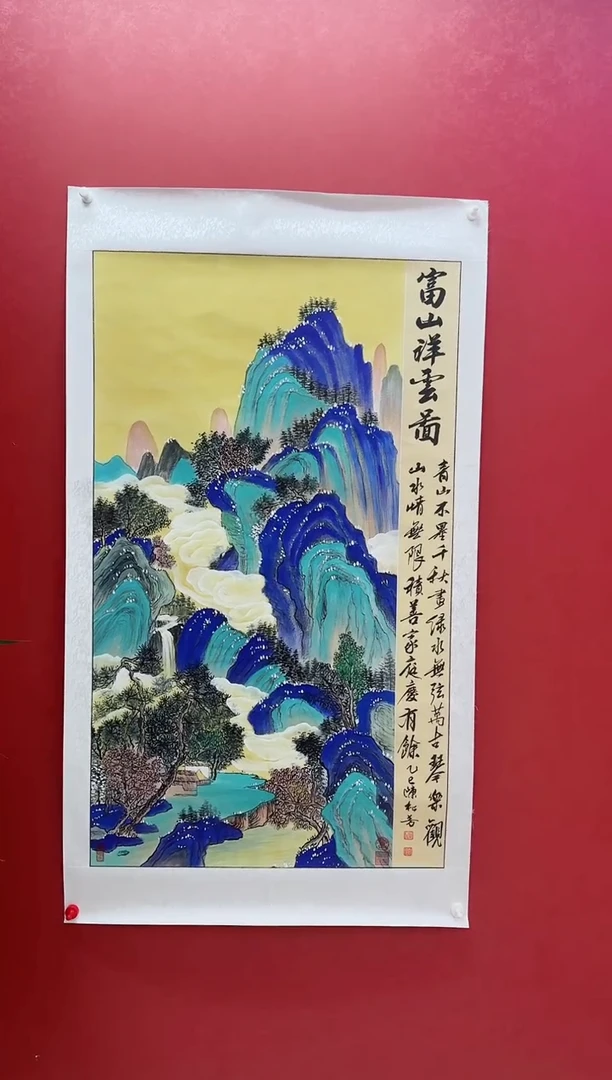 富山祥雲圖
青山不墨千秋畫綠水無弦萬古琴樂觀
山水情無限積善家庭慶有餘乙巳陳松芳